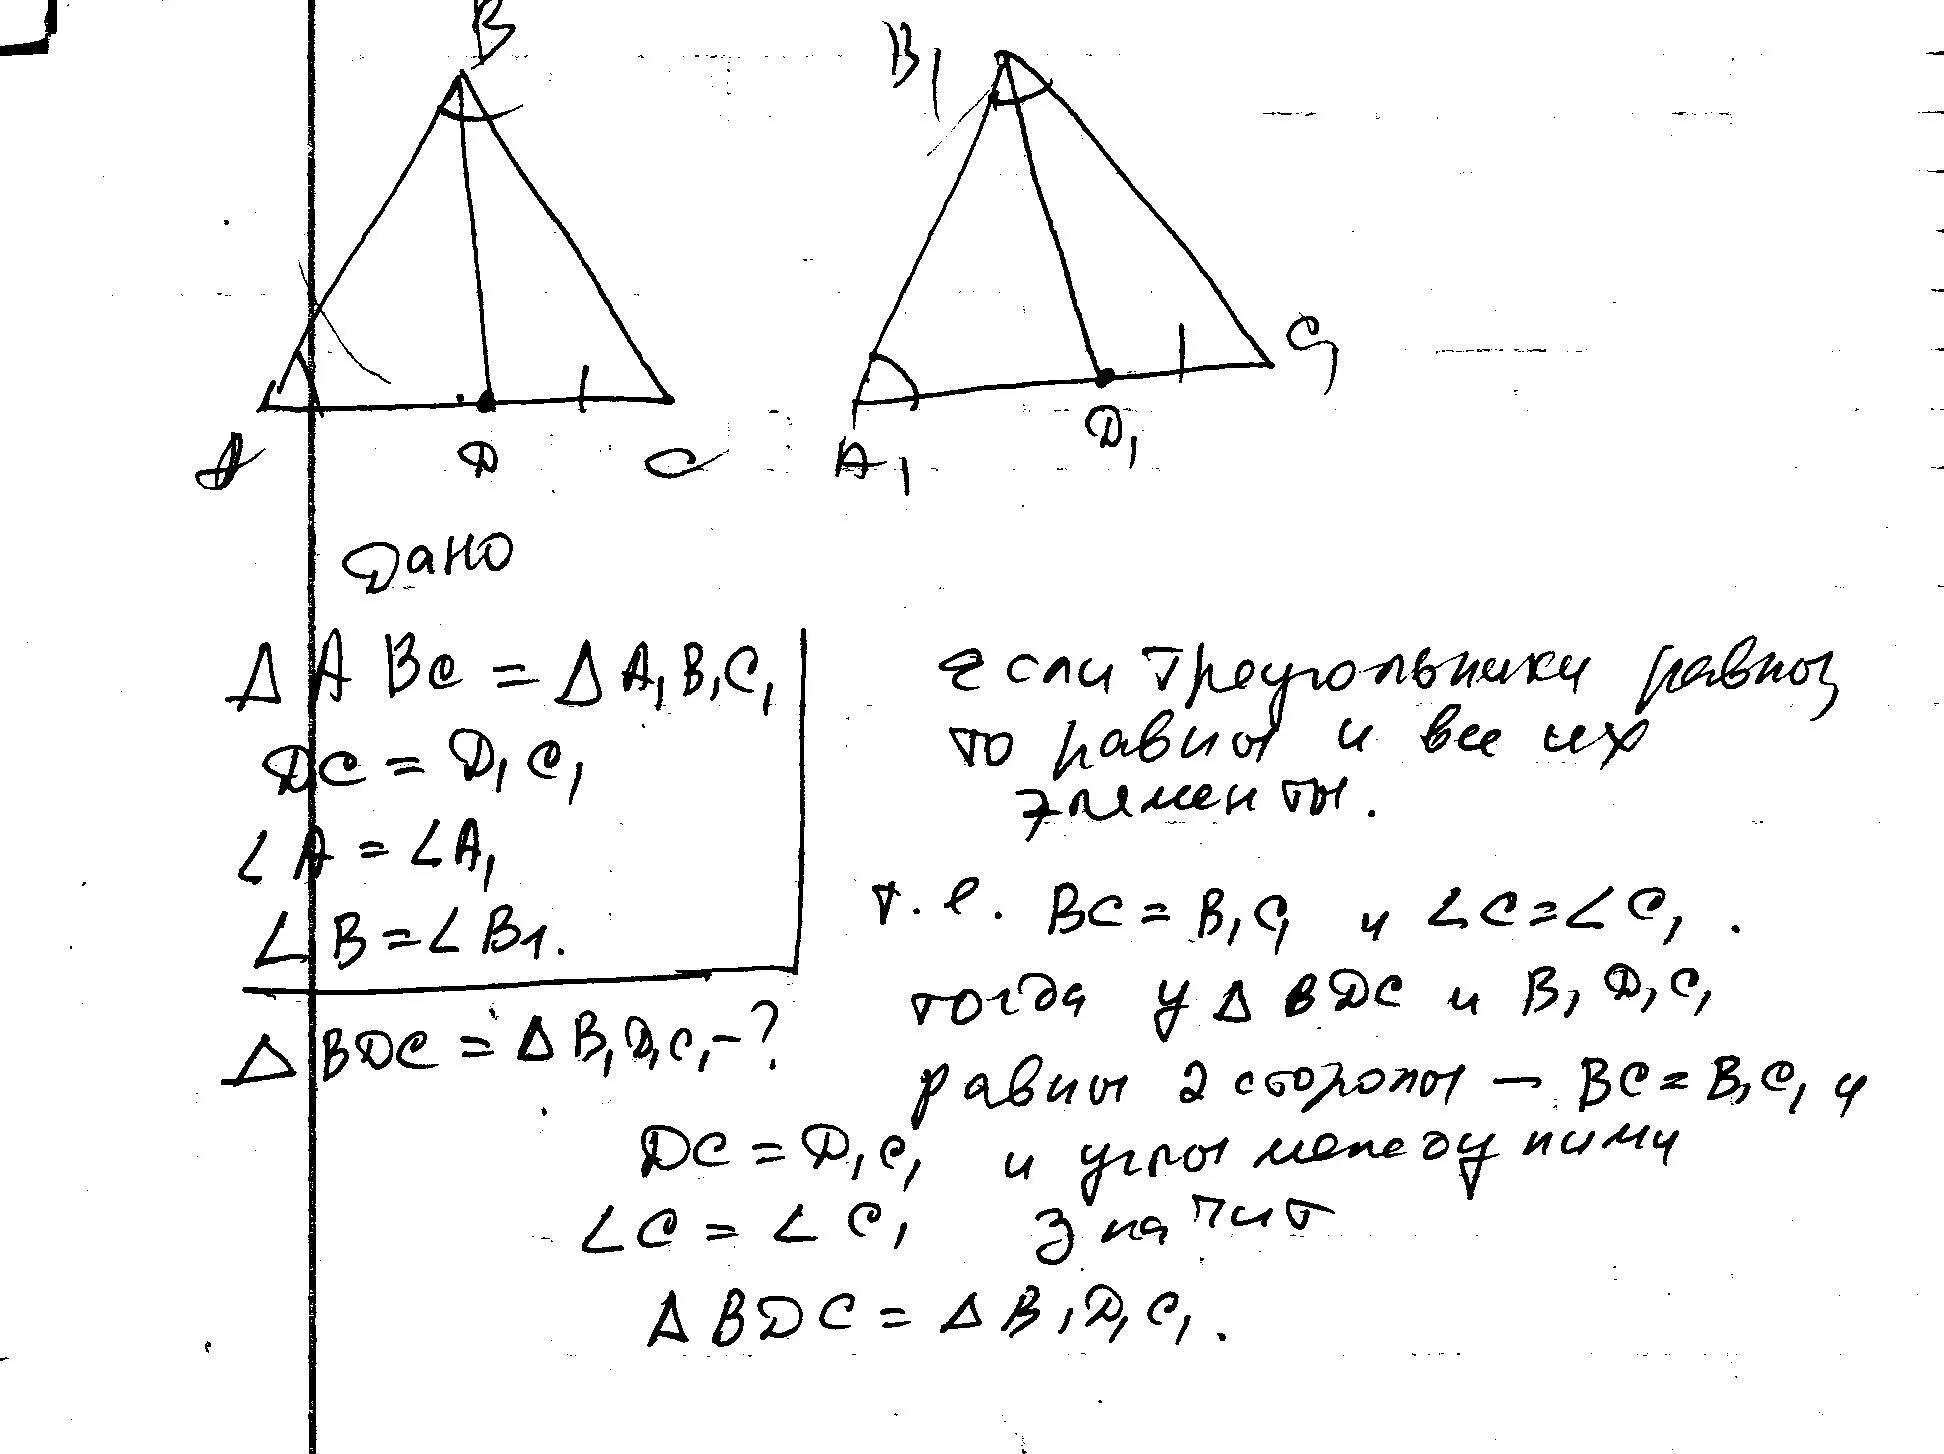 B
B₁
C₁
A
D
C
A₁
D₁
Дано
Δ ABC = Δ A₁B₁C₁
DC = D₁C₁
∠A = ∠A₁
∠B = ∠B₁.
Δ BDC = Δ B₁D₁C₁ - ?
если треугольники равны
то равны и все их
элементы.
т.е. BC = B₁C₁ и ∠C = ∠C₁.
тогда у Δ BDC и B₁D₁C₁
равны 2 стороны — BC = B₁C₁ и
DC = D₁C₁ и углы между ними
∠C = ∠C₁ значит
Δ BDC = Δ B₁D₁C₁.